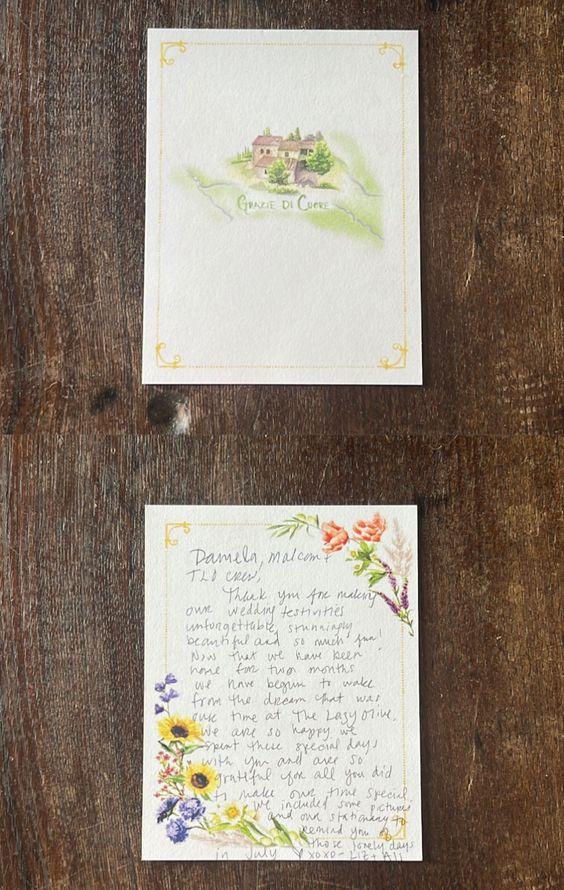 Grazie di Cuore
Daniela, Malcom +
TLO Crew,
Thank you for making
our wedding festivities
unforgettable, stunningly
beautiful and so much fun!
Now that we have been
home for two months
we have begun to wake
from the dream that was
our time at The Lazy Olive.
We are so happy we
spent these special days
with you and are so
grateful for all you did
to make our time special
We included some pictures
and our stationary to
remind you of
those lovely days
in July XOXO - Liz + Ali